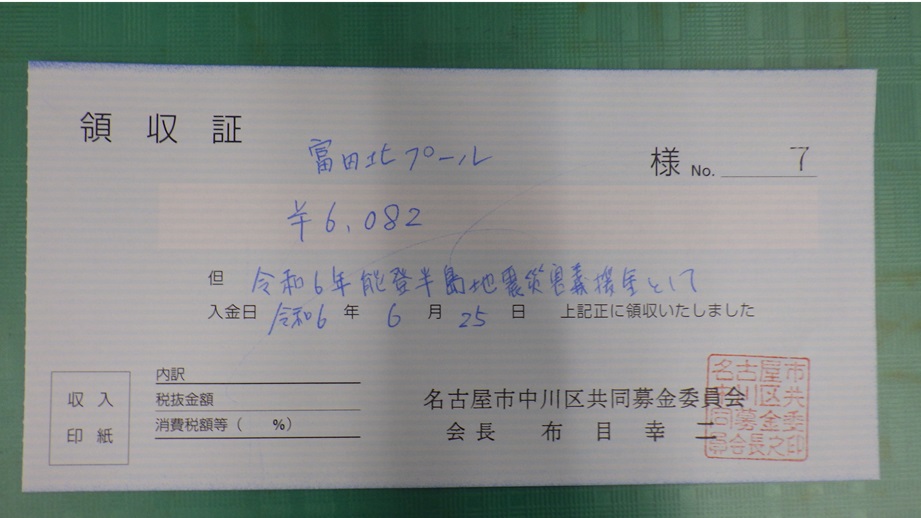 領収証
富田北プール 様 No. 7
¥6,082
但 令和6年能登半島地震災害義援金として
入金日 令和6年 6月 25日 上記正に領収いたしました
収入
印紙
内訳
税抜金額
消費税額等( %)
名古屋市中川区共同募金委員会
会長 布目幸二
名古屋市
中川区共
同募金委
員会長之印